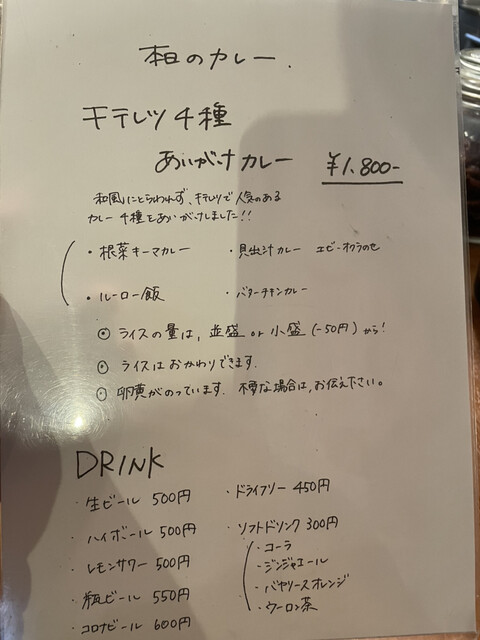 本日のカレー.
キテレツ4種
あいがけカレー ¥1,800-
和風にとらわれず、キテレツで人気のある
カレー4種をあいがけしました!!
・根菜キーマカレー ・貝出汁カレー エビ・オクラのせ
・ルーロー飯 ・バターチキンカレー
◎ ライスの量は、並盛 or 小盛(-50円)から!
◎ ライスはおかわりできます.
◎ 卵黄がのっています. 不要な場合は、お伝え下さい。
DRINK
・生ビール 500円
・ハイボール 500円
・レモンサワー 500円
・瓶ビール 550円
・コロナビール 600円
・ドライフリー 450円
・ソフトドリンク 300円
・コーラ
・ジンジャエール
・バヤリースオレンジ
・ウーロン茶